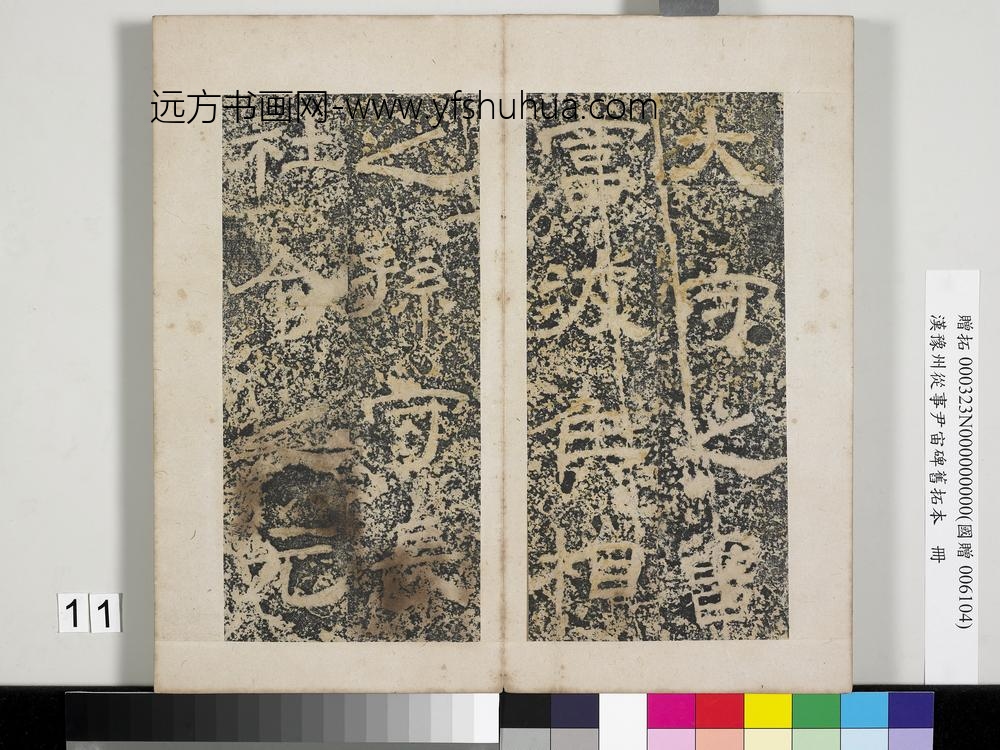 远方书画网-www.yfshuhua.com
大守之曾
富波侯相
之孫守長
社令之元
贈拓 000323N000000000(國贈 006104)
漢豫州從事尹宙碑舊拓本 冊
11